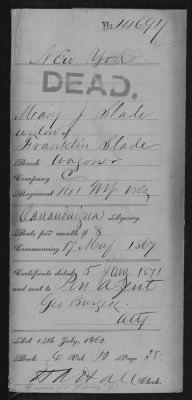 No. 14697
New York
DEAD.
Mary J Slade
widow of
Franklin Slade
Rank Wagoner
Company C
Regiment 161 NY Vols
Canandaigua Agency.
Rate per month $ 8
Commencing 17 May 1867
Certificate dated 5 Jany 1871
and sent to Pen Agent
Geo
Atty
Act 14th July, 1862.
Book G Vol. 10 Page 38
Clerk.